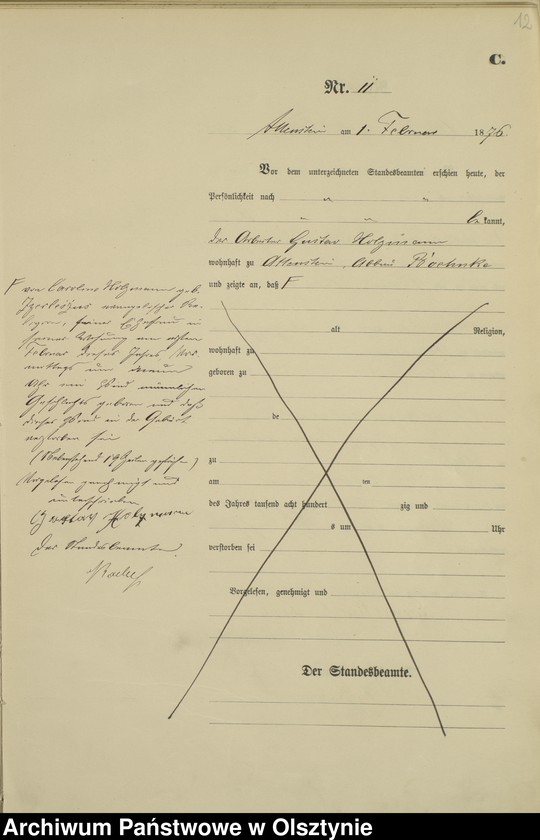 12
C.
Nr. 11
Allenstein am 1. Februar 1876.
Vor dem unterzeichneten Standesbeamten erschien heute, der
Persönlichkeit nach
bekannt,
der Arbeiter Gustav Holzmann
wohnhaft zu Allenstein, Abbau
und zeigte an, daß F
F von Caroline Holzmann geb.
evangelischer Re-
ligion, seiner Ehefrau in
seiner Wohnung am ersten
Februar dieses Jahres Vor-
mittags um neun
Uhr ein Kind männlichen
Geschlechts geboren und daß
dieses Kind in der Geburt
verstorben sei
(Nebenstehend 19 Zeilen gestrichen)
Vorgelesen genehmigt und
unterschrieben
Gustav Holzmann
Der Standesbeamte.
alt Religion,
wohnhaft zu
geboren zu
de
zu
am um
des Jahres tausend acht hundert zig und
s um Uhr
verstorben sei
Vorgelesen, genehmigt und
Der Standesbeamte.
Archiwum Państwowe w Olsztynie